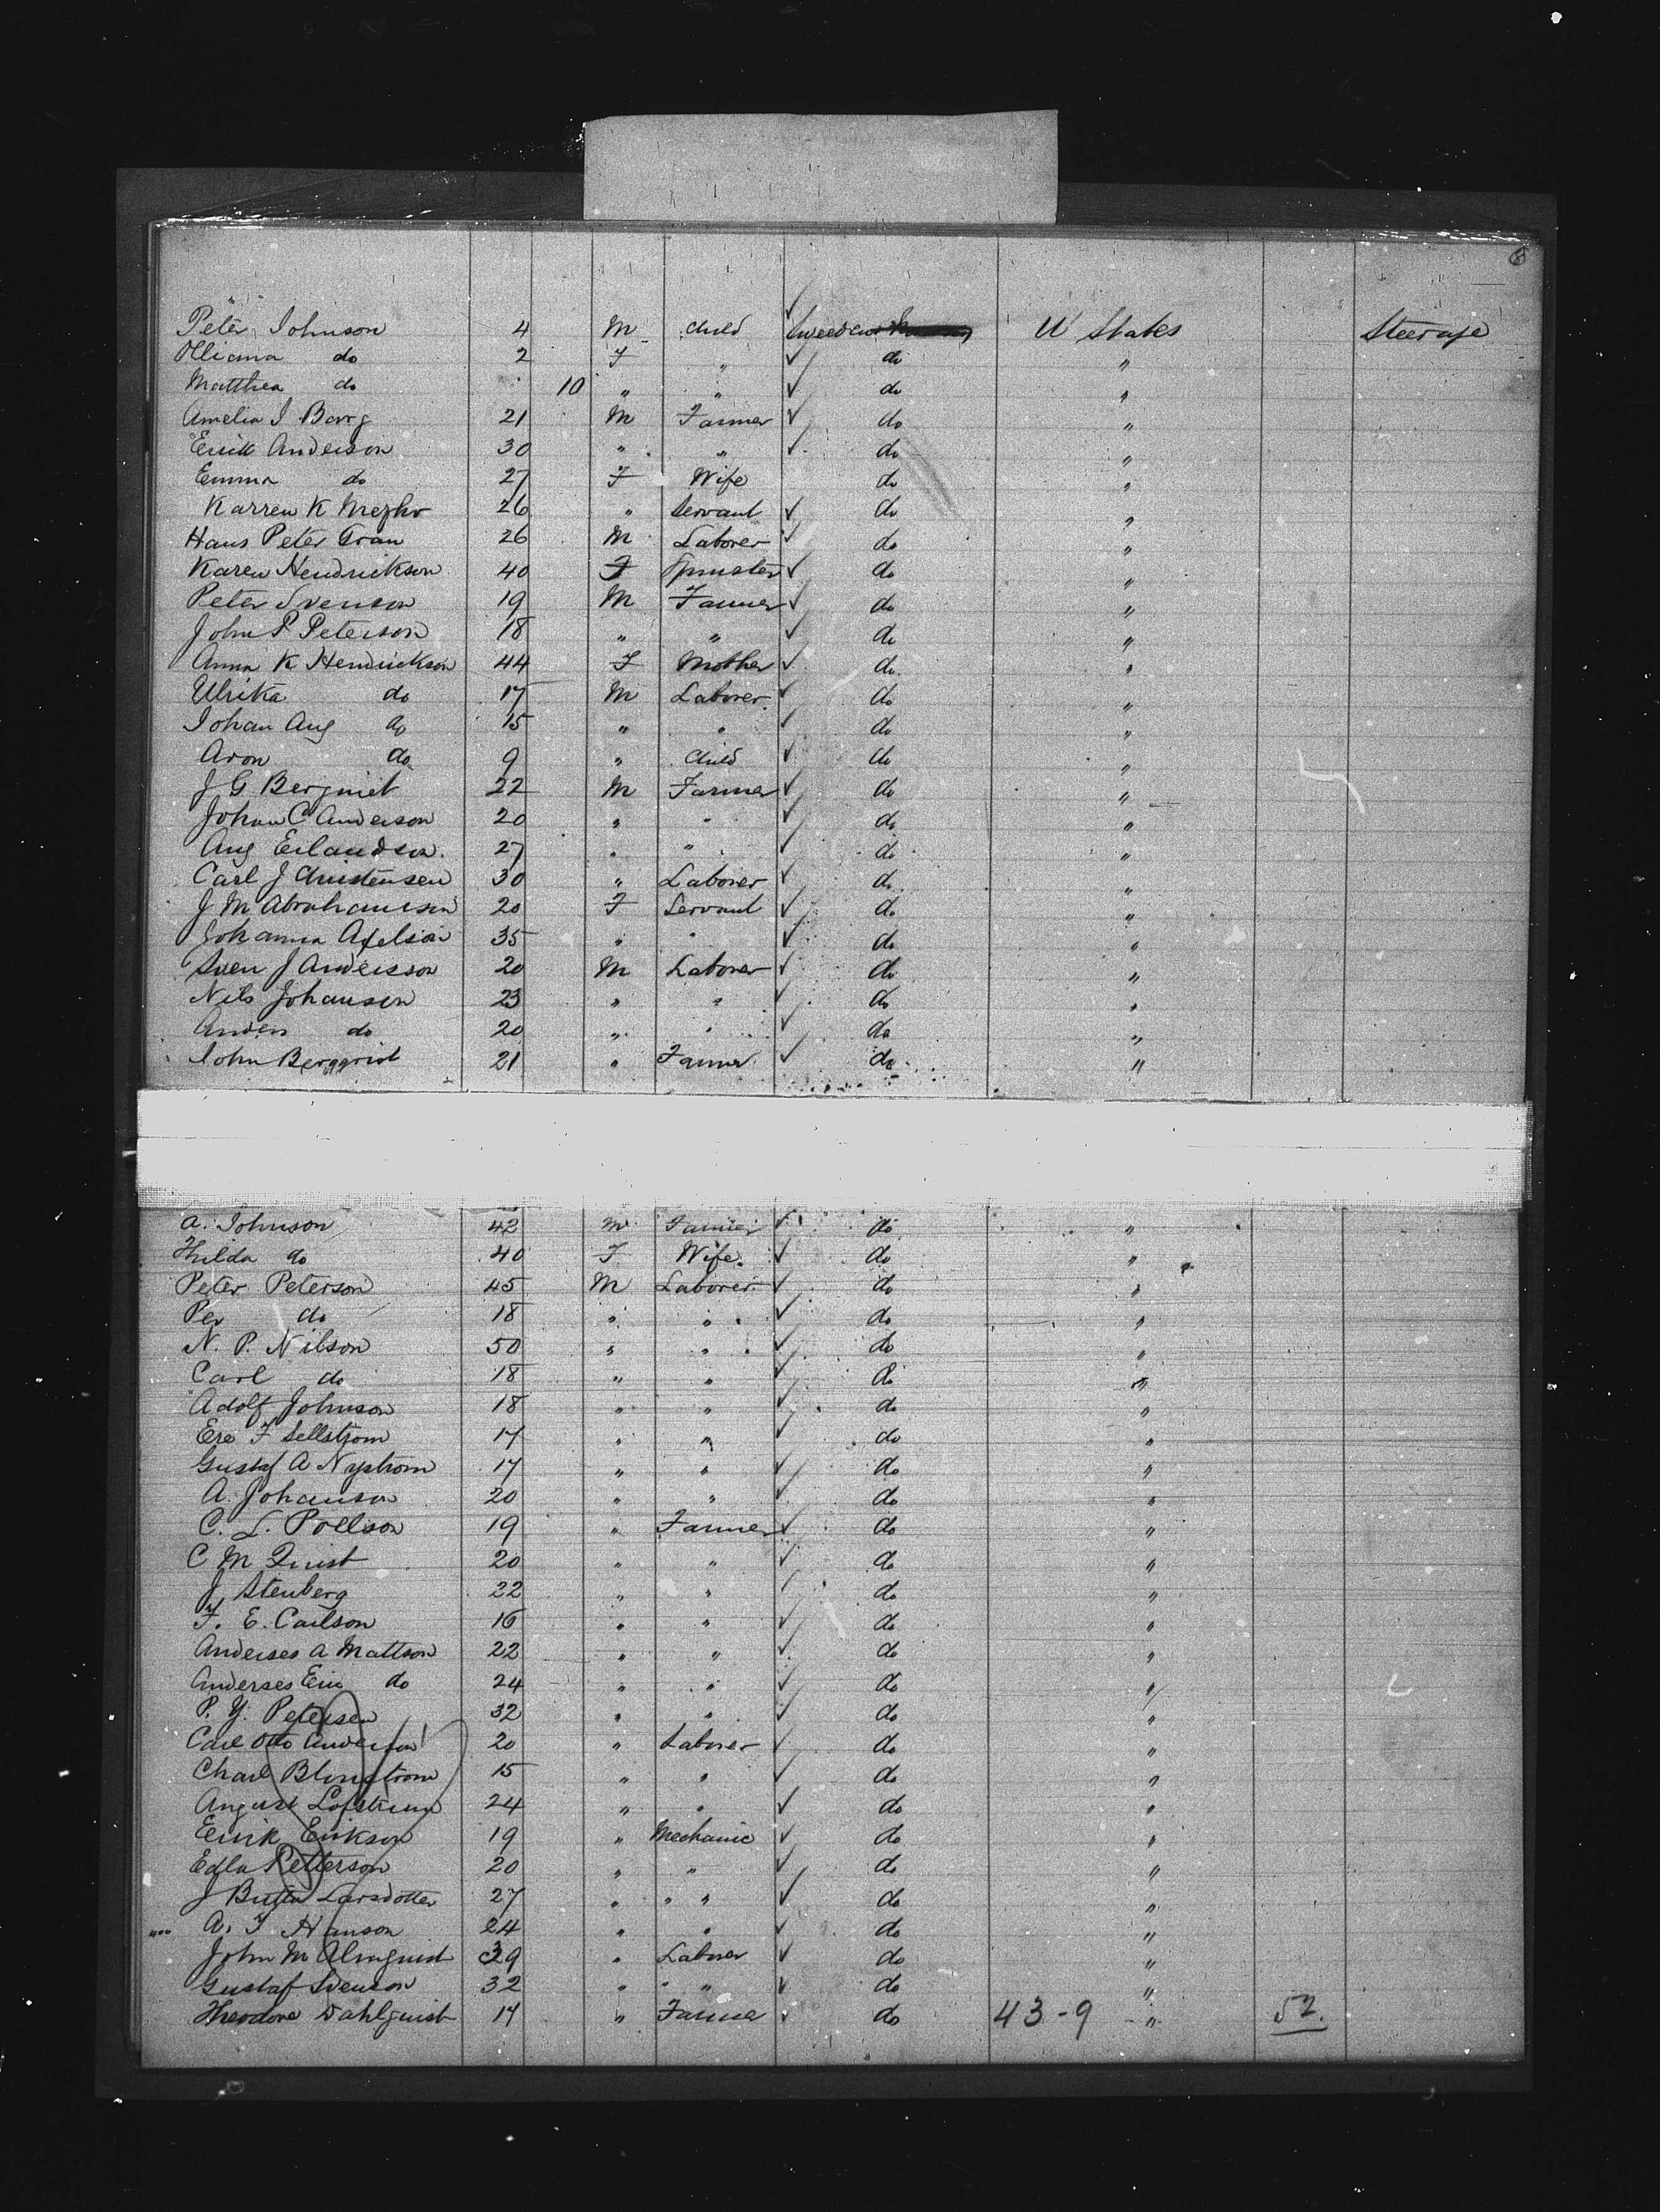 8
Peter Johnson 4 M child Sweeden U States Steerage
Olliana do 2 F " do "
Matthea do 10 " " do "
Amelia I Borrg 21 M Farmer do "
Erick Anderson 30 " " do "
Emma do 27 F Wife do "
Karren K 26 " Servant do "
Hans Peter Gran 26 M Laborer do "
Karen Hendrickson 40 F Spinster do "
Peter Svenson 19 M Farmer do "
John P Peterson 18 " " do "
Anna K Hendrickson 44 F Mother do "
Ulrika do 17 M Laborer do "
Johan Aug do 15 " " do "
Aron do 9 " child do "
J G Berquist 22 M Farmer do "
Johan C Anderson 20 " " do "
Aug Erlandson 27 " " do "
Carl J Christensen 30 " Laborer do "
J M Abrahamson 20 F Servant do "
Johanna Axelson 35 " " do "
Sven J Andersson 20 M Laborer do "
Nils Johansen 23 " " do "
Anders do 20 " " do "
John Bergqvist 21 " Farmer do "
A. Johnson 42 M Farmer do "
Hilda do 40 F Wife do "
Peter Peterson 45 M Laborer do "
Per do 18 " " do "
N. P. Nilson 50 " " do "
Carl do 18 " " do "
Adolf Johnson 18 " " do "
Ere F Sellstrom 17 " " do "
Gustaf A Nystrom 17 " " do "
A. Johanson 20 " " do "
C. L. Pollson 19 " Farmer do "
C M Quist 20 " " do "
J Stenberg 22 " " do "
F. E. Carlson 16 " " do "
Anderses A Mattson 22 " " do "
Anderses Eric do 24 " " do "
P. Y. Petersen 32 " " do "
Carl Otto Anderson 20 " Laborer do "
Charl Blomstrom 15 " " do "
August Lofstrum 24 " " do "
Erick Erikson 19 " Mechanic do "
Edla Petterson 20 " " do "
J Britta Larsdotter 27 " " " do "
A. F Hanson 24 " " do "
John M Almquist 39 " Laborer do "
Gustaf Svenson 32 " " do "
Theodore Dahlquist 17 " Farmer do 43-9 " 52.